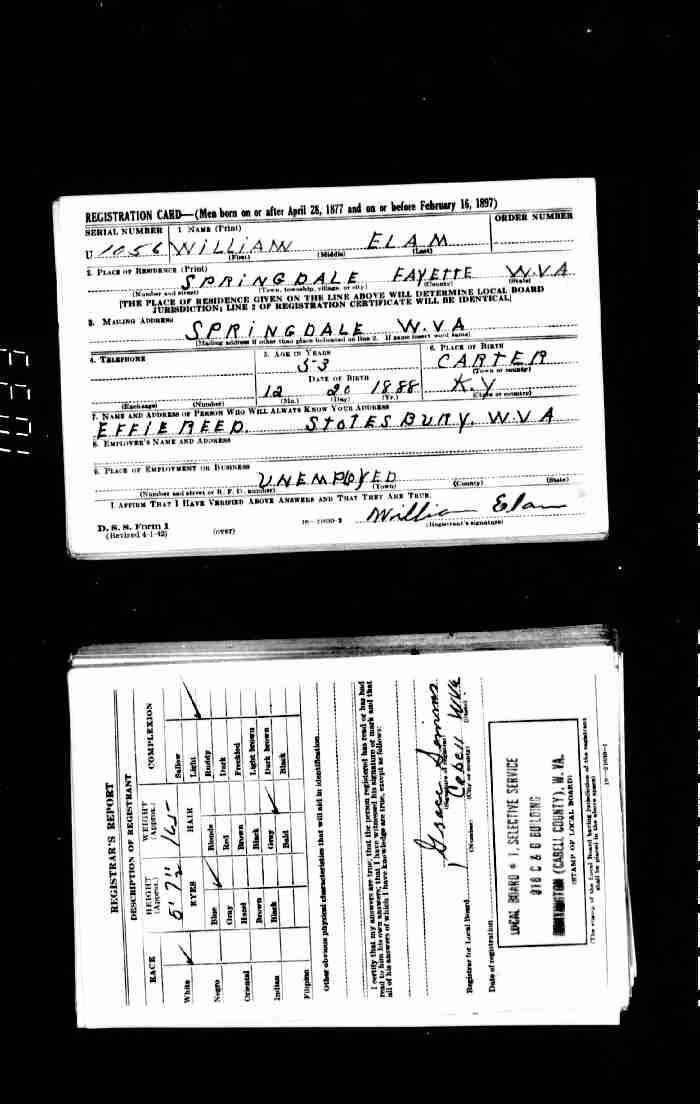 REGISTRATION CARD—(Men born on or after April 28, 1877 and on or before February 16, 1897)
SERIAL NUMBER 1. NAME (Print) ORDER NUMBER
U 1056 WILLIAM ELAM
(First) (Middle) (Last)
2. PLACE OF RESIDENCE (Print)
SPRINGDALE FAYETTE W.VA
(Number and street) (Town, township, village, or city) (County) (State)
[THE PLACE OF RESIDENCE GIVEN ON THE LINE ABOVE WILL DETERMINE LOCAL BOARD
JURISDICTION; LINE 2 OF REGISTRATION CERTIFICATE WILL BE IDENTICAL]
3. MAILING ADDRESS
SPRINGDALE W.VA
[Mailing address if other than place indicated on line 2. If same insert word same]
4. TELEPHONE 5. AGE IN YEARS 6. PLACE OF BIRTH
53 CARTER
(Town or county)
DATE OF BIRTH
12 20 1888 KY
(Exchange) (Number) (Mo.) (Day) (Yr.) (State or country)
7. NAME AND ADDRESS OF PERSON WHO WILL ALWAYS KNOW YOUR ADDRESS
EFFIE REED. STOTESBURY. W.VA
8. EMPLOYER'S NAME AND ADDRESS
9. PLACE OF EMPLOYMENT OR BUSINESS
UNEMPLOYED
(Number and street or R. F. D. number) (Town) (County) (State)
I AFFIRM THAT I HAVE VERIFIED ABOVE ANSWERS AND THAT THEY ARE TRUE.
William Elam
D. S. S. Form 1
(Revised 4-1-42) (over) 16—21630-2 (Registrant's signature)
REGISTRAR'S REPORT
DESCRIPTION OF REGISTRANT
RACE HEIGHT (Approx.) WEIGHT (Approx.) COMPLEXION
5' 7½" 165
EYES HAIR
White Blue Blonde Sallow
Light
Negro Gray Red Ruddy
Hazel Brown Dark
Oriental Brown Black Freckled
Indian Black Gray Light brown
Bald Dark brown
Filipino Black
Other obvious physical characteristics that will aid in identification
I certify that my answers are true; that the person registered has read or has had
read to him his own answers; that I have witnessed his signature or mark and that
all of his answers of which I have knowledge are true, except as follows:
Grace Simms
(Signature of registrar)
Registrar for Local Board Cabell W.Va
(Number) (City or county) (State)
Date of registration
LOCAL BOARD # 1, SELECTIVE SERVICE
918 C & O BUILDING
HUNTINGTON (CABELL COUNTY), W. VA.
(STAMP OF LOCAL BOARD)
(The stamp of the Local Board having jurisdiction of the registrant
shall be placed in the above space)
16—21630-1